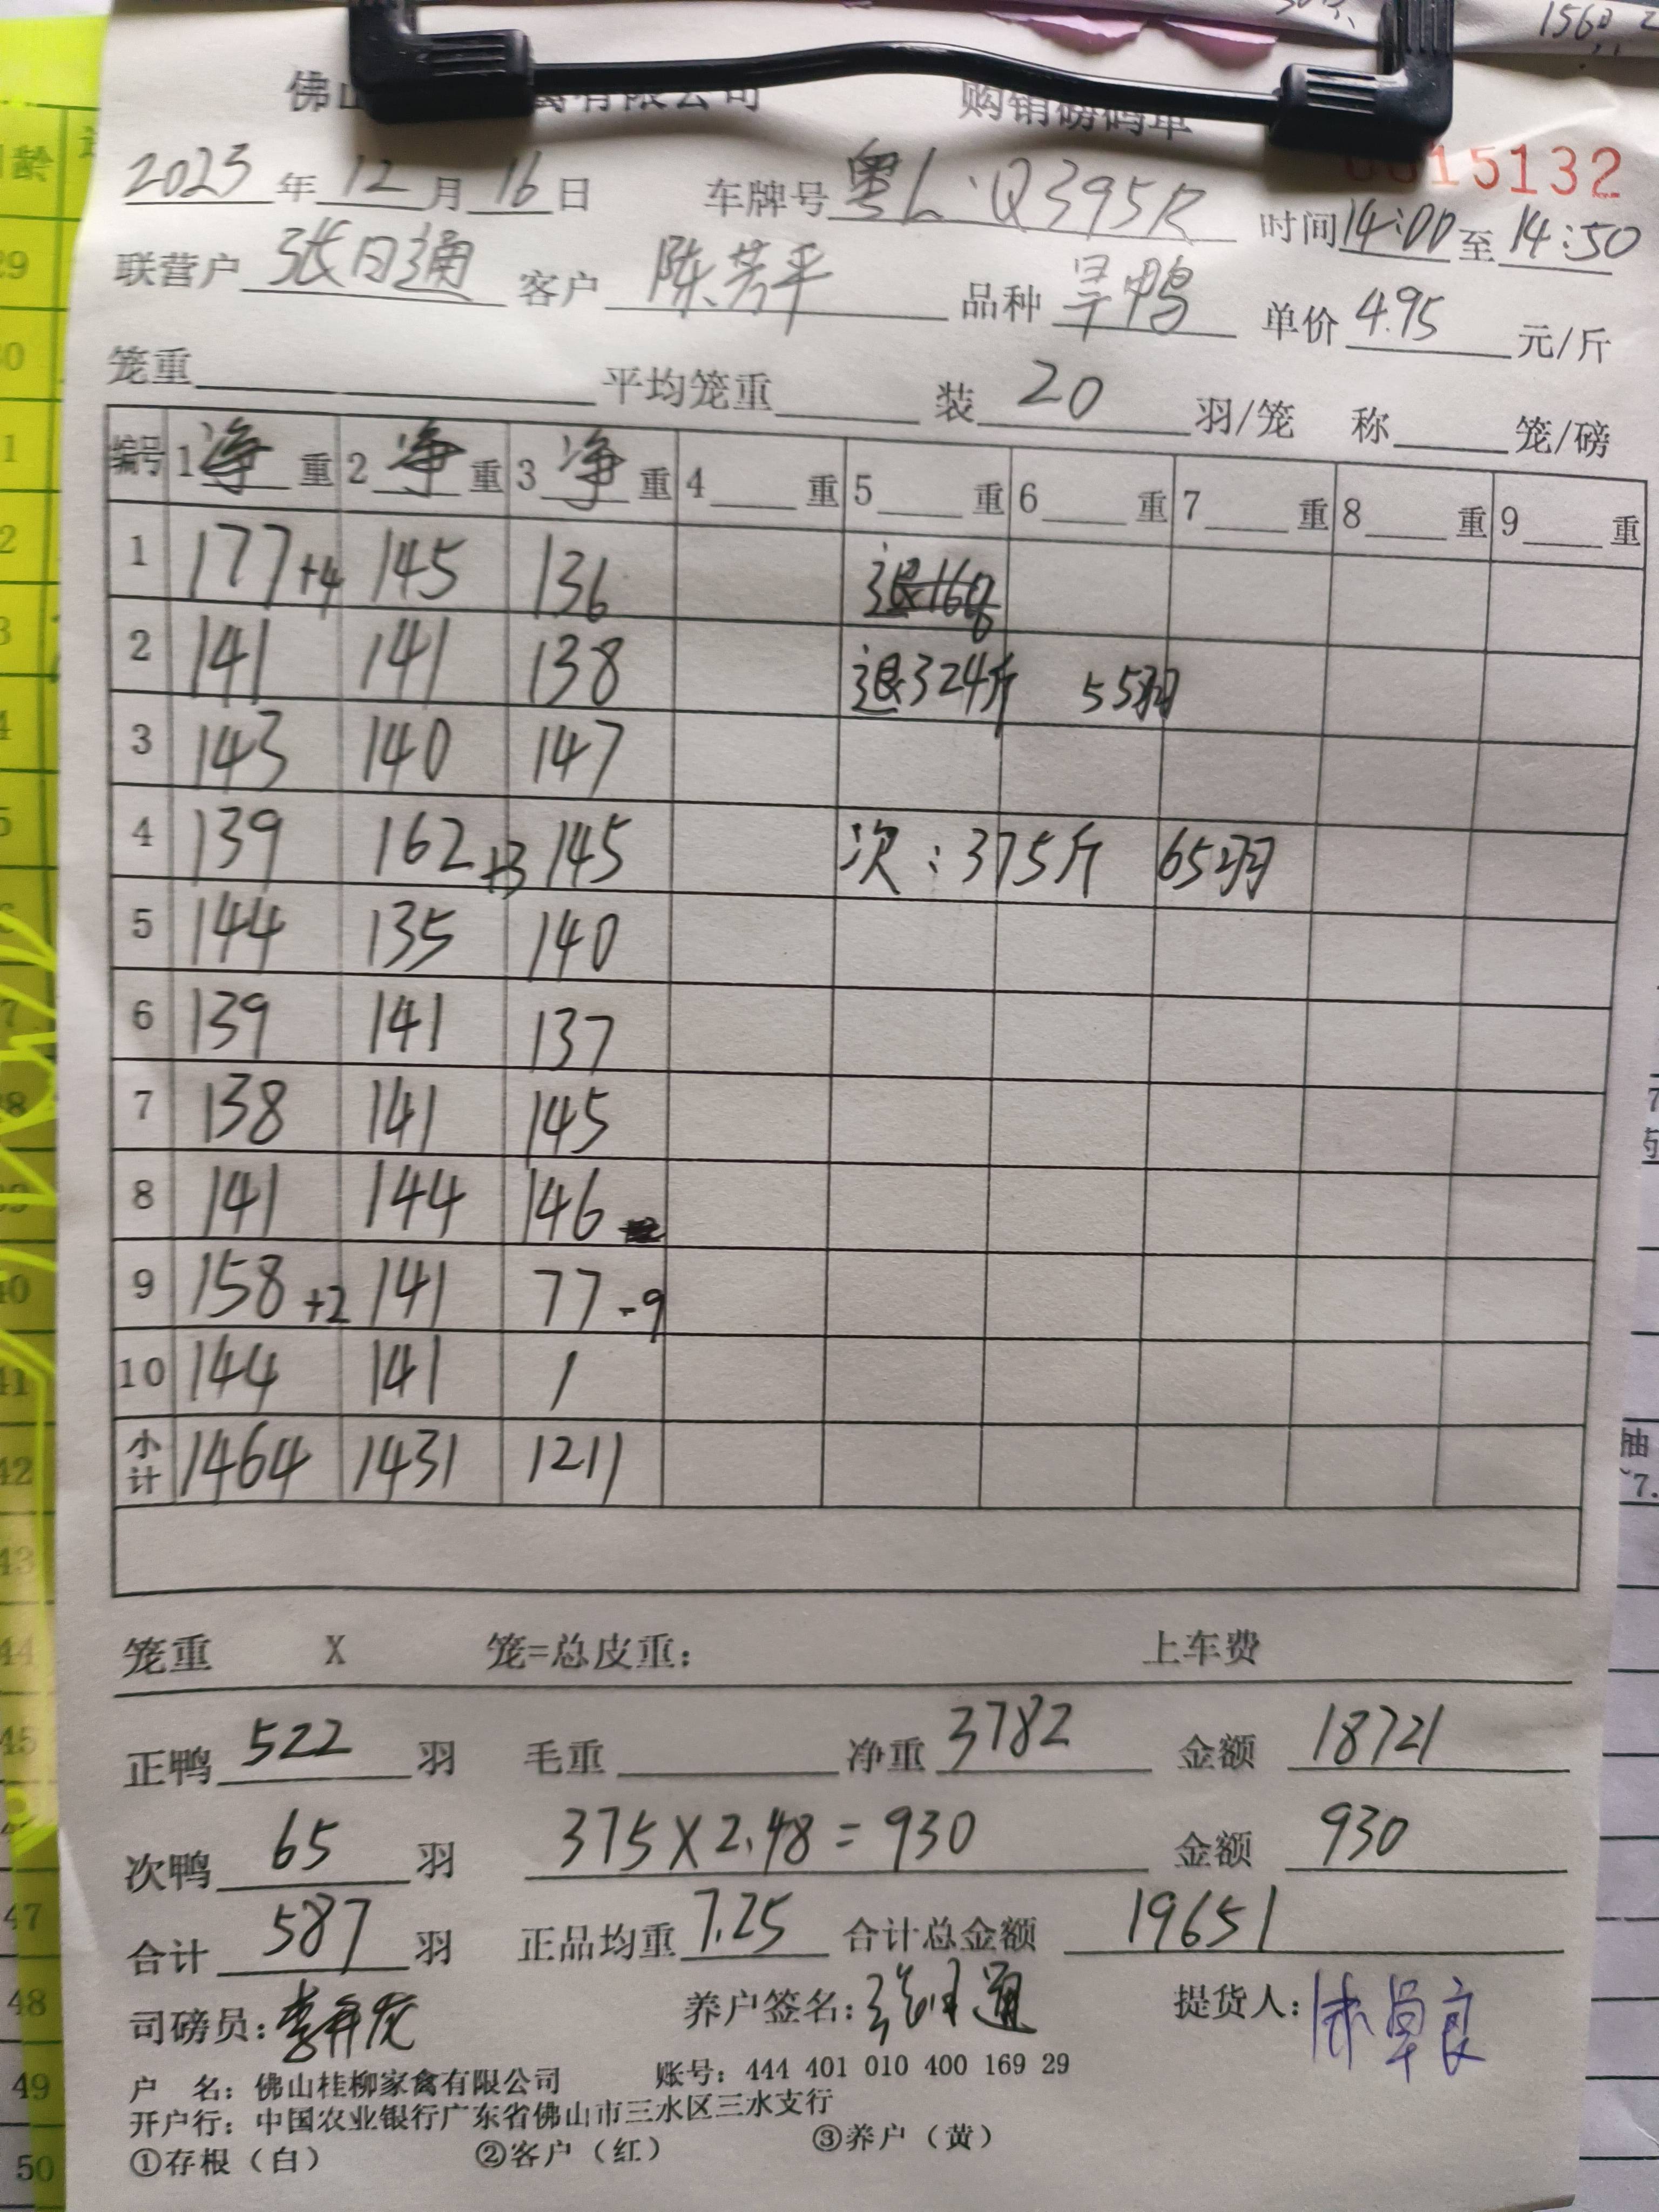 佛山 禽有限公司 购销磅码单
15132
2023年12月16日 车牌号 粤L·Q395R 时间14:00至14:50
联营户 张日通 客户 陈芳平 品种 旱鸭 单价 4.95 元/斤
笼重 平均笼重 装 20 羽/笼 称 笼/磅
编号 1净重 2净重 3净重 4重 5重 6重 7重 8重 9重
1 177+4 145 136
2 141 141 138 退324斤 55羽
3 143 140 147
4 139 162+3 145 次:375斤 65羽
5 144 135 140
6 139 141 137
7 138 141 145
8 141 144 146
9 158+2 141 77-9
10 144 141 /
小计 1464 1431 1211
笼重 X 笼=总皮重: 上车费
正鸭 522 羽 毛重 净重 3782 金额 18721
次鸭 65 羽 375×2.48=930 金额 930
合计 587 羽 正品均重 7.25 合计总金额 19651
司磅员: 养户签名:张日通 提货人:
户 名:佛山桂柳家禽有限公司 账号:444 401 010 400 169 29
开户行:中国农业银行广东省佛山市三水区三水支行
①存根(白) ②客户(红) ③养户(黄)